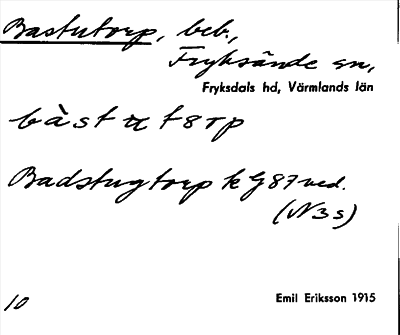 Bastutorp, beb.,
Fryksände sn,
Fryksdals hd, Värmlands län
bàstutorp
Badstugtorp k G87 ved.
(N3s)
10
Emil Eriksson 1915